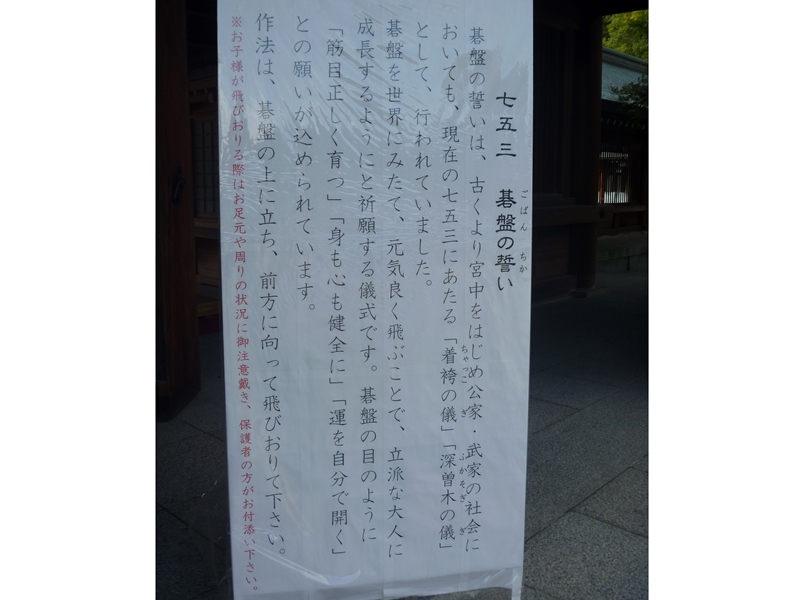 七五三　碁盤の誓い
ごばん　ちか
碁盤の誓いは、古くより宮中をはじめ公家・武家の社会に
おいても、現在の七五三にあたる「着袴の儀」「深曽木の儀」
ちゃっこ　ぎ　ふかそぎ　ぎ
として、行われていました。
碁盤を世界にみたて、元気良く飛ぶことで、立派な大人に
成長するようにと祈願する儀式です。碁盤の目のように
「筋目正しく育つ」「身も心も健全に」「運を自分で開く」
との願いが込められています。
作法は、碁盤の上に立ち、前方に向って飛びおりて下さい。
※お子様が飛びおりる際はお足元や周りの状況に御注意戴き、保護者の方がお付添い下さい。